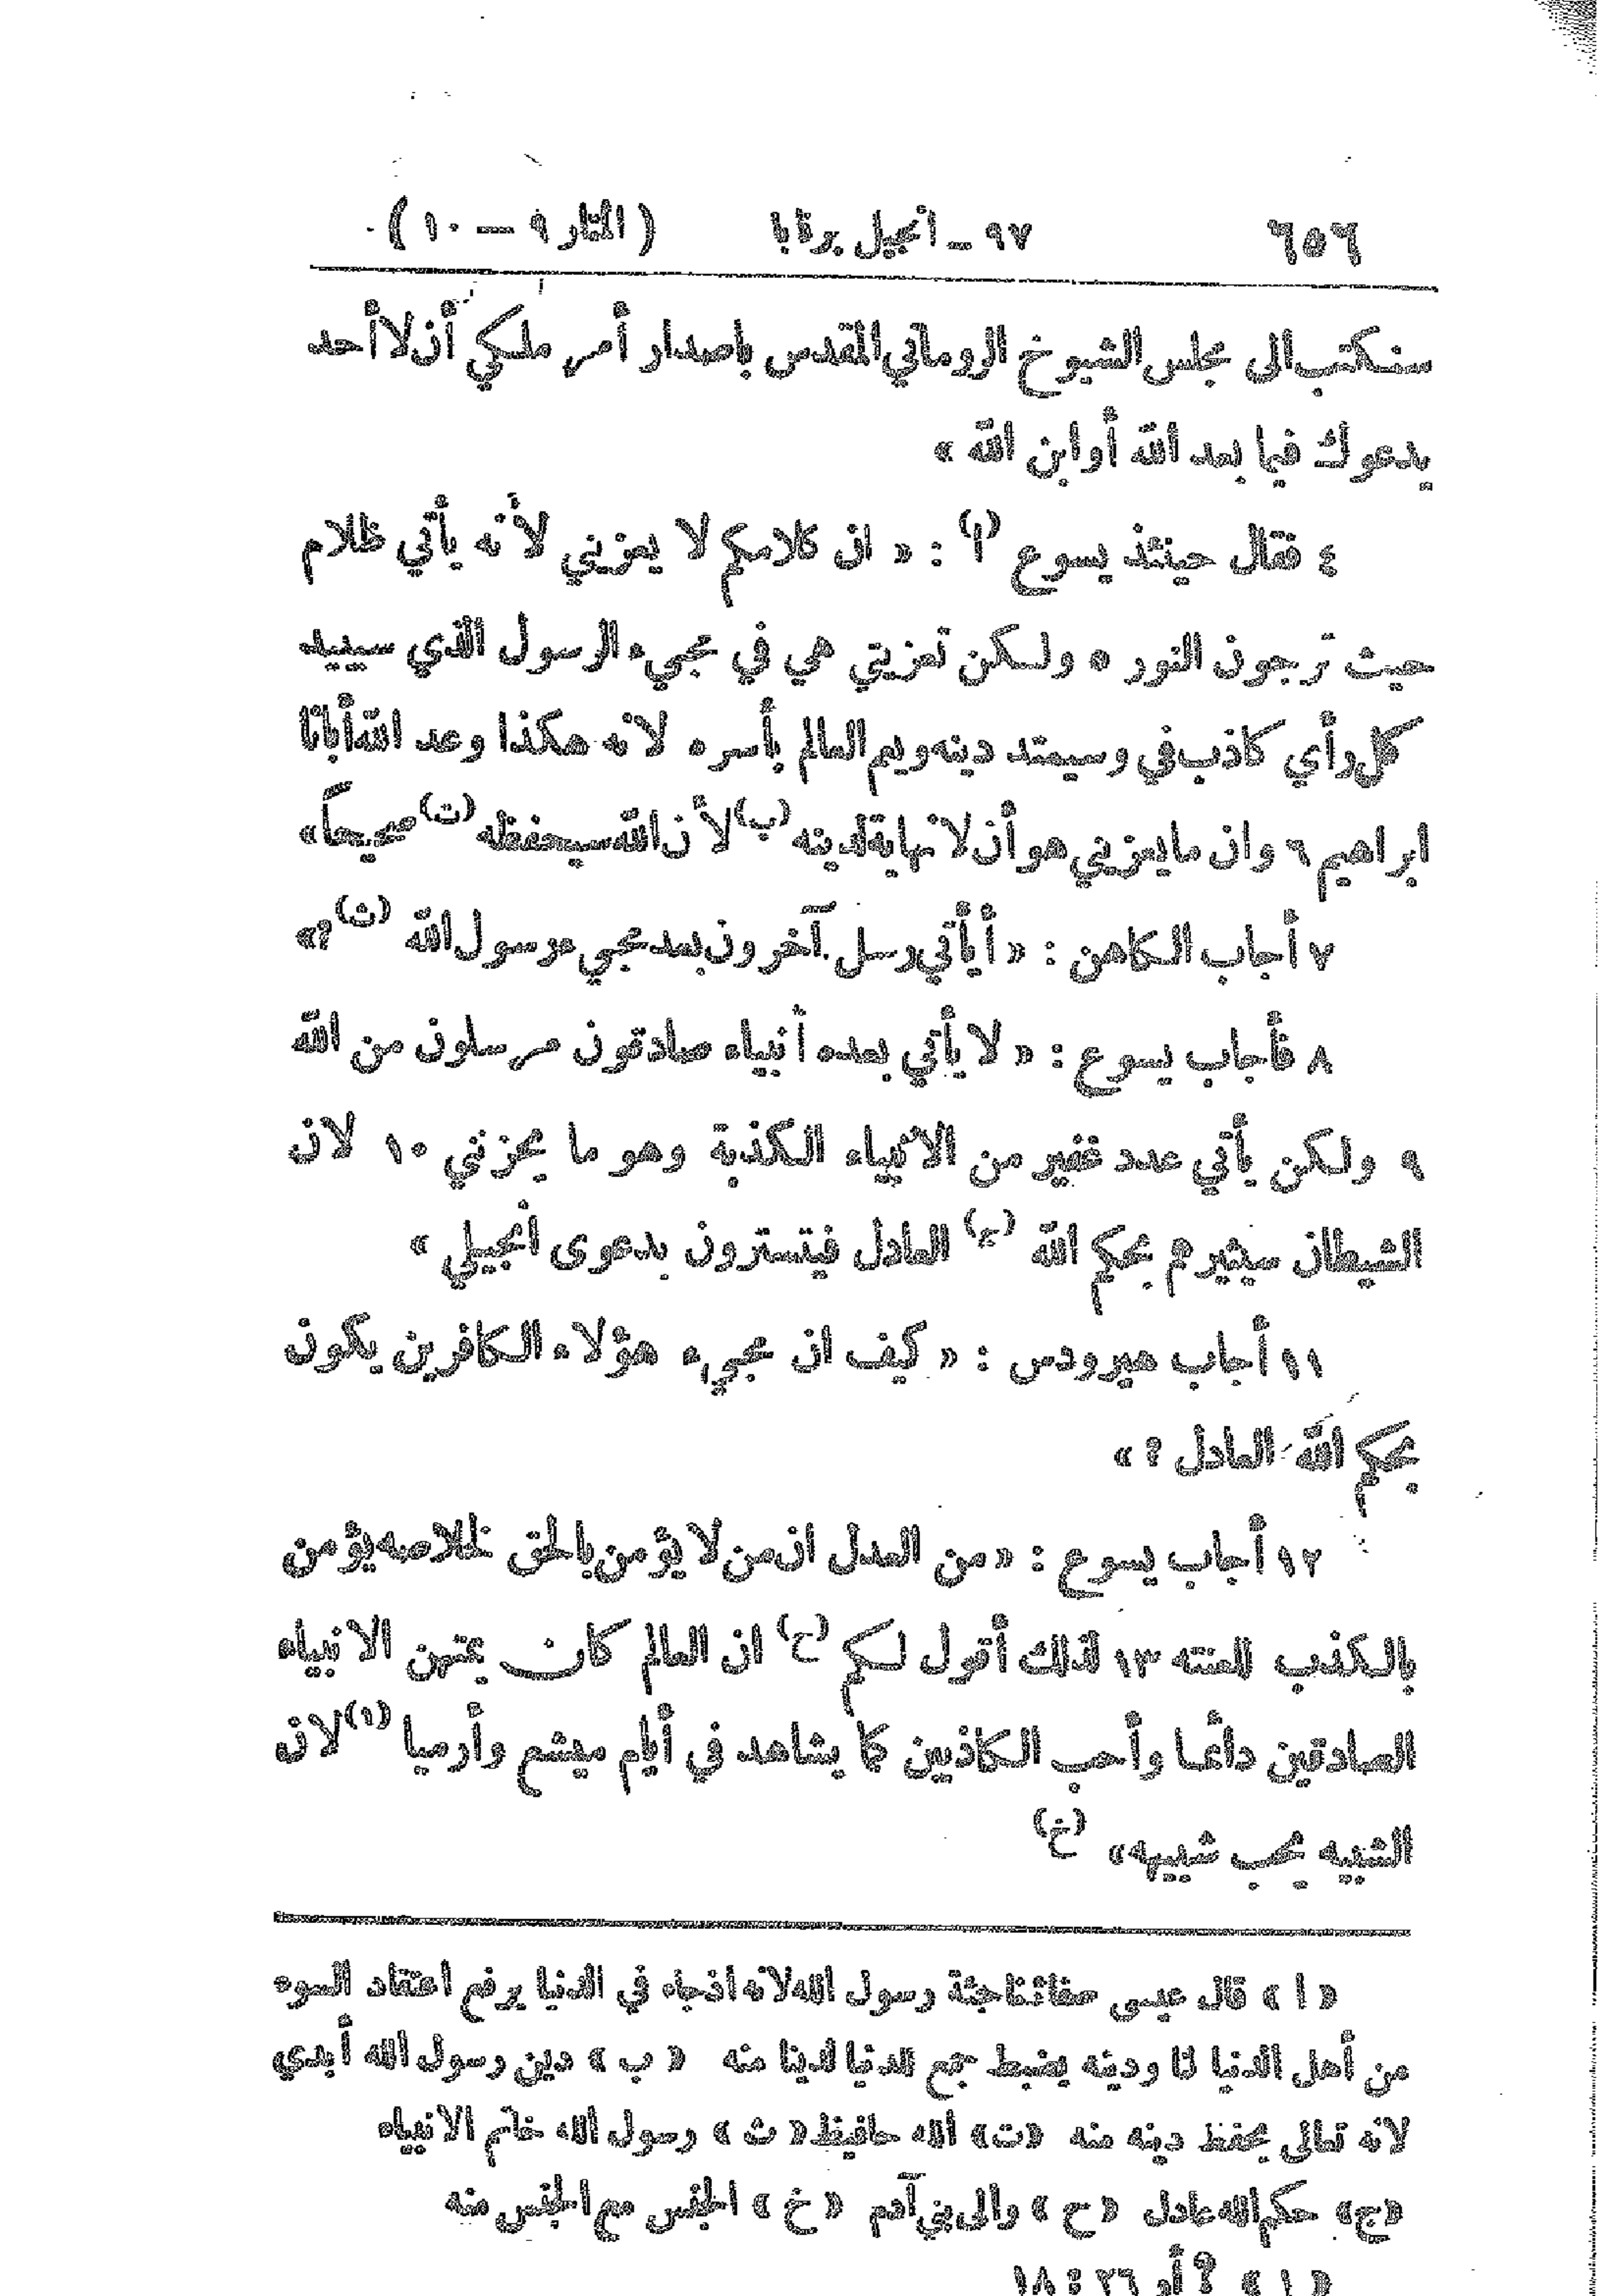 ٦٥٦ ٩٧ – انجيل برنابا (المنار ٩ – ١٠)
سنكتب الى مجلس الشيوخ الروماني المقدس باصدار أمر ملكي أن لا أحد
يدعوك فيما بعد الله أو ابن الله »
٤ فقال حينئذ يسوع (ا) : « ان كلامكم لا يعزيني لأنه يأتي ظلام
حيث ترجون النور ٥ ولكن تعزيتي هي في مجيء الرسول الذي سيبيد
كل رأي كاذب في وسيمتد دينه ويعم العالم بأسره لانه هكذا وعد الله أبانا
ابراهيم ٦ وان ما يعزيني هو أن لا نهاية لدينه (ب) لأن الله سيحفظه (ت) صحيحاً »
٧ أجاب الكاهن : « أيأتي رسل آخرون بعد مجيء رسول الله (ث) ؟ »
٨ فأجاب يسوع : « لا يأتي بعده أنبياء صادقون مرسلون من الله
٩ ولكن يأتي عدد غفير من الانبياء الكذبة وهو ما يحزنني ١٠ لان
الشيطان سيثيرهم بحكم الله (ج) العادل فيتسترون بدعوى انجيلي »
١١ أجاب هيرودس : « كيف ان مجيء هؤلاء الكافرين يكون
بحكم الله العادل ؟ »
١٢ أجاب يسوع : « من العدل ان من لا يؤمن بالحق لخلاصه يؤمن
بالكذب للعنته ١٣ لذلك أقول لكم (ح) ان العالم كان يمتهن الانبياء
الصادقين دائما وأحب الكاذبين كما يشاهد في أيام ميشع وأرميا (١) لان
الشبيه يحب شبيهه » (خ)
« ا » قال عيسى جئة رسول الله لانه اذ جاء في الدنيا يرفع اعتقاد السوء
من أهل الدنيا لنا ودينه يضبط جمع الدنيا لدينا منه « ب » دين رسول الله أبدي
لانه تعالى يحفظ دينه منه « ت » الله حافيظ « ث » رسول الله خاتم الانبياء
« ج » حكم الله عادل « ح » والى بني آدم « خ » الجنس مع الجنس منه
« ١ » أر ٢٦ : ١٨